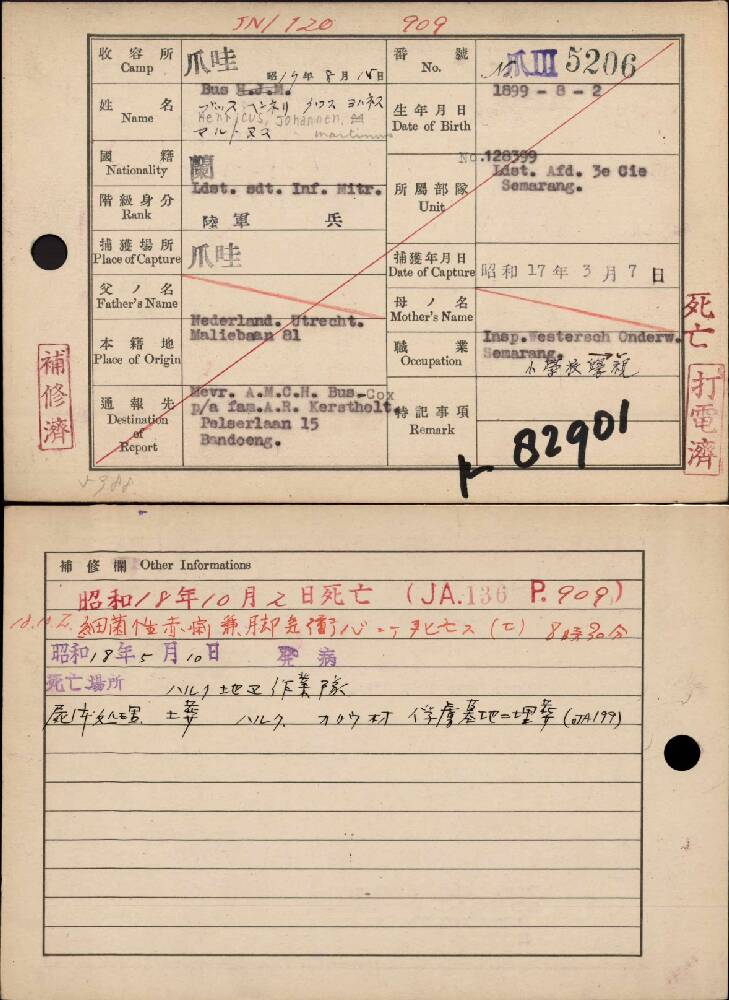 JN/ 120 909
收容所 Camp 爪哇 昭17年8月15日
番號 No. No.爪III 5206
姓名 Name Bus H.J.M.
ブッス ヘンネリ
Henricus, Johannen,
マルトヌス martinus
生年月日 Date of Birth 1899 - 8 - 2
國籍 Nationality 蘭
No.128399
階級身分 Rank Ldst. sdt. Inf. Mitr.
陸軍 兵
所屬部隊 Unit Ldst. Afd. 3e Cie
Semarang.
捕獲場所 Place of Capture 爪哇
捕獲年月日 Date of Capture 昭和17年3月7日
父ノ名 Father's Name
母ノ名 Mother's Name
本籍地 Place of Origin Nederland. Utrecht.
Maliebaan 81
職業 Occupation Insp.Westersch Onderw.
Semarang.
小學校視
通報先 Destination of Report Mevr. A.M.C.H. Bus-Cox
p/a fam.A.R. Kerstholt.
Pelserlaan 15
Bandoeng.
特記事項 Remark
82901
補修濟
死亡
打電濟
補修欄 Other Informations
昭和18年10月2日死亡 (JA.136 P.909)
18.10.2. 細菌性赤痢兼脚気衝心ニテ死亡ス (亡) 8時30分
昭和18年5月10日 発病
死亡場所 ハルク地区作業隊
屍体処理 土葬 ハルク. カロウ村 俘虜墓地ニ埋葬 (JA199)